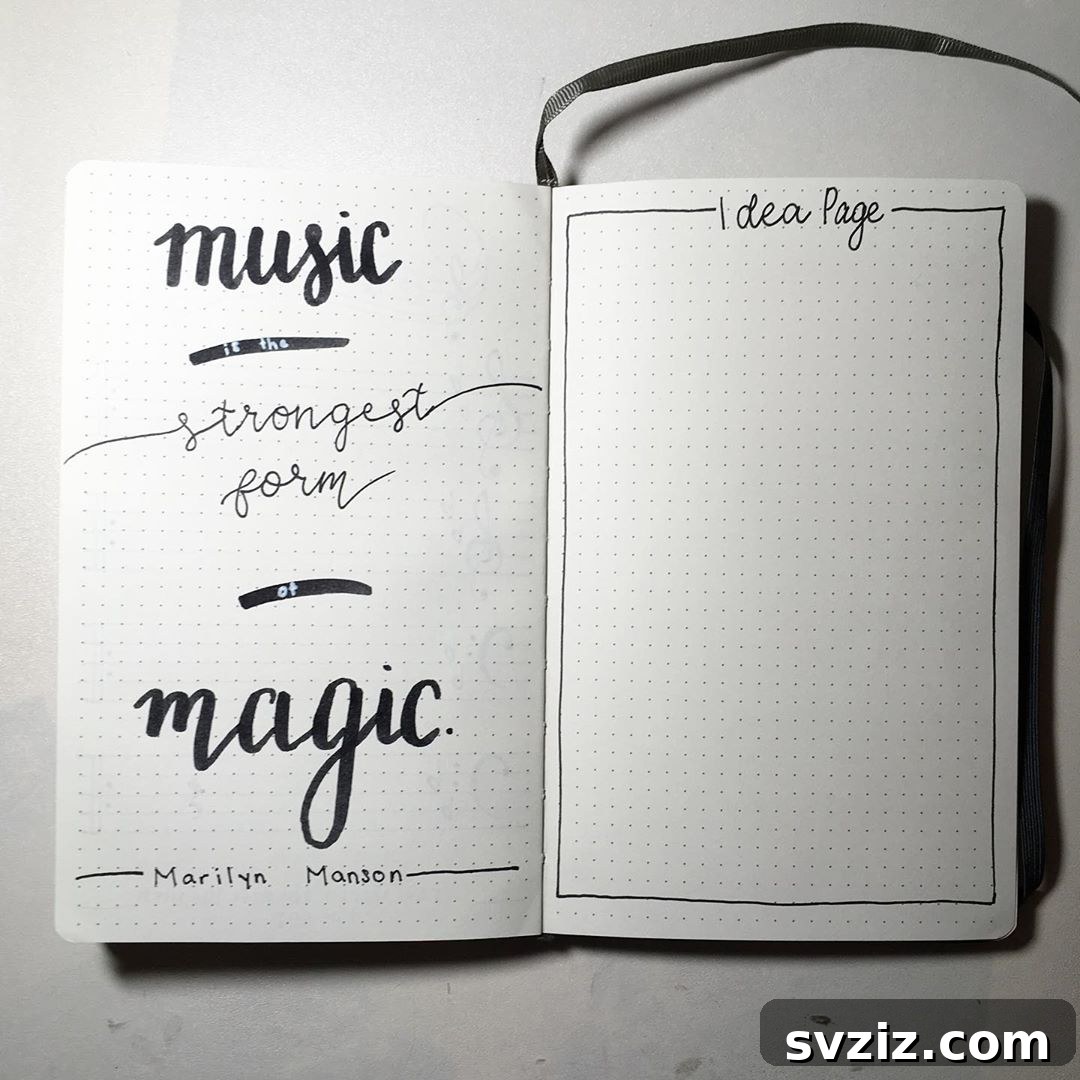 music
is the
strongest
form
of
magic.
Marilyn Manson
Idea Page
svziz.com